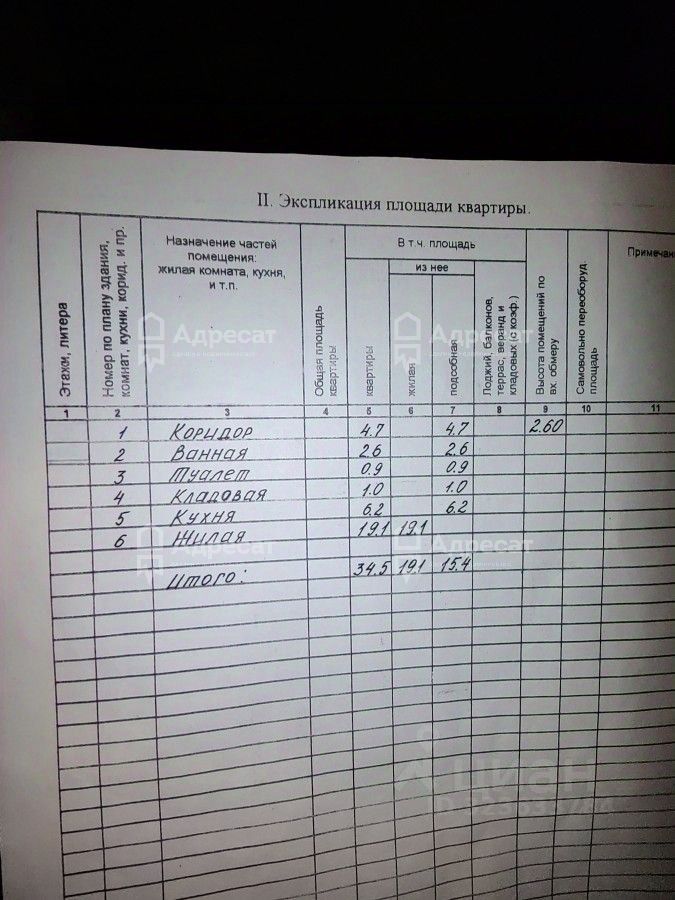 II. Экспликация площади квартиры.
Этажи, литера
Номер по плану здания, комнат, кухни, корид. и пр.
Назначение частей
помещения:
жилая комната, кухня,
и т.п.
Общая площадь квартиры
В т.ч. площадь
квартиры
из нее
жилая
подсобная
Лоджий, балконов, террас, веранд и кладовых (с коэф.)
Высота помещений по вх. обмеру
Самовольно переоборуд. площадь
Примечан
1 2 3 4 5 6 7 8 9 10 11
1 Коридор 4.7 4.7 2.60
2 Ванная 2.6 2.6
3 Туалет 0.9 0.9
4 Кладовая 1.0 1.0
5 Кухня 6.2 6.2
6 Жилая 19.1 19.1
Итого: 34.5 19.1 15.4
Адресат
Адресат
Адресат
Адресат
циан